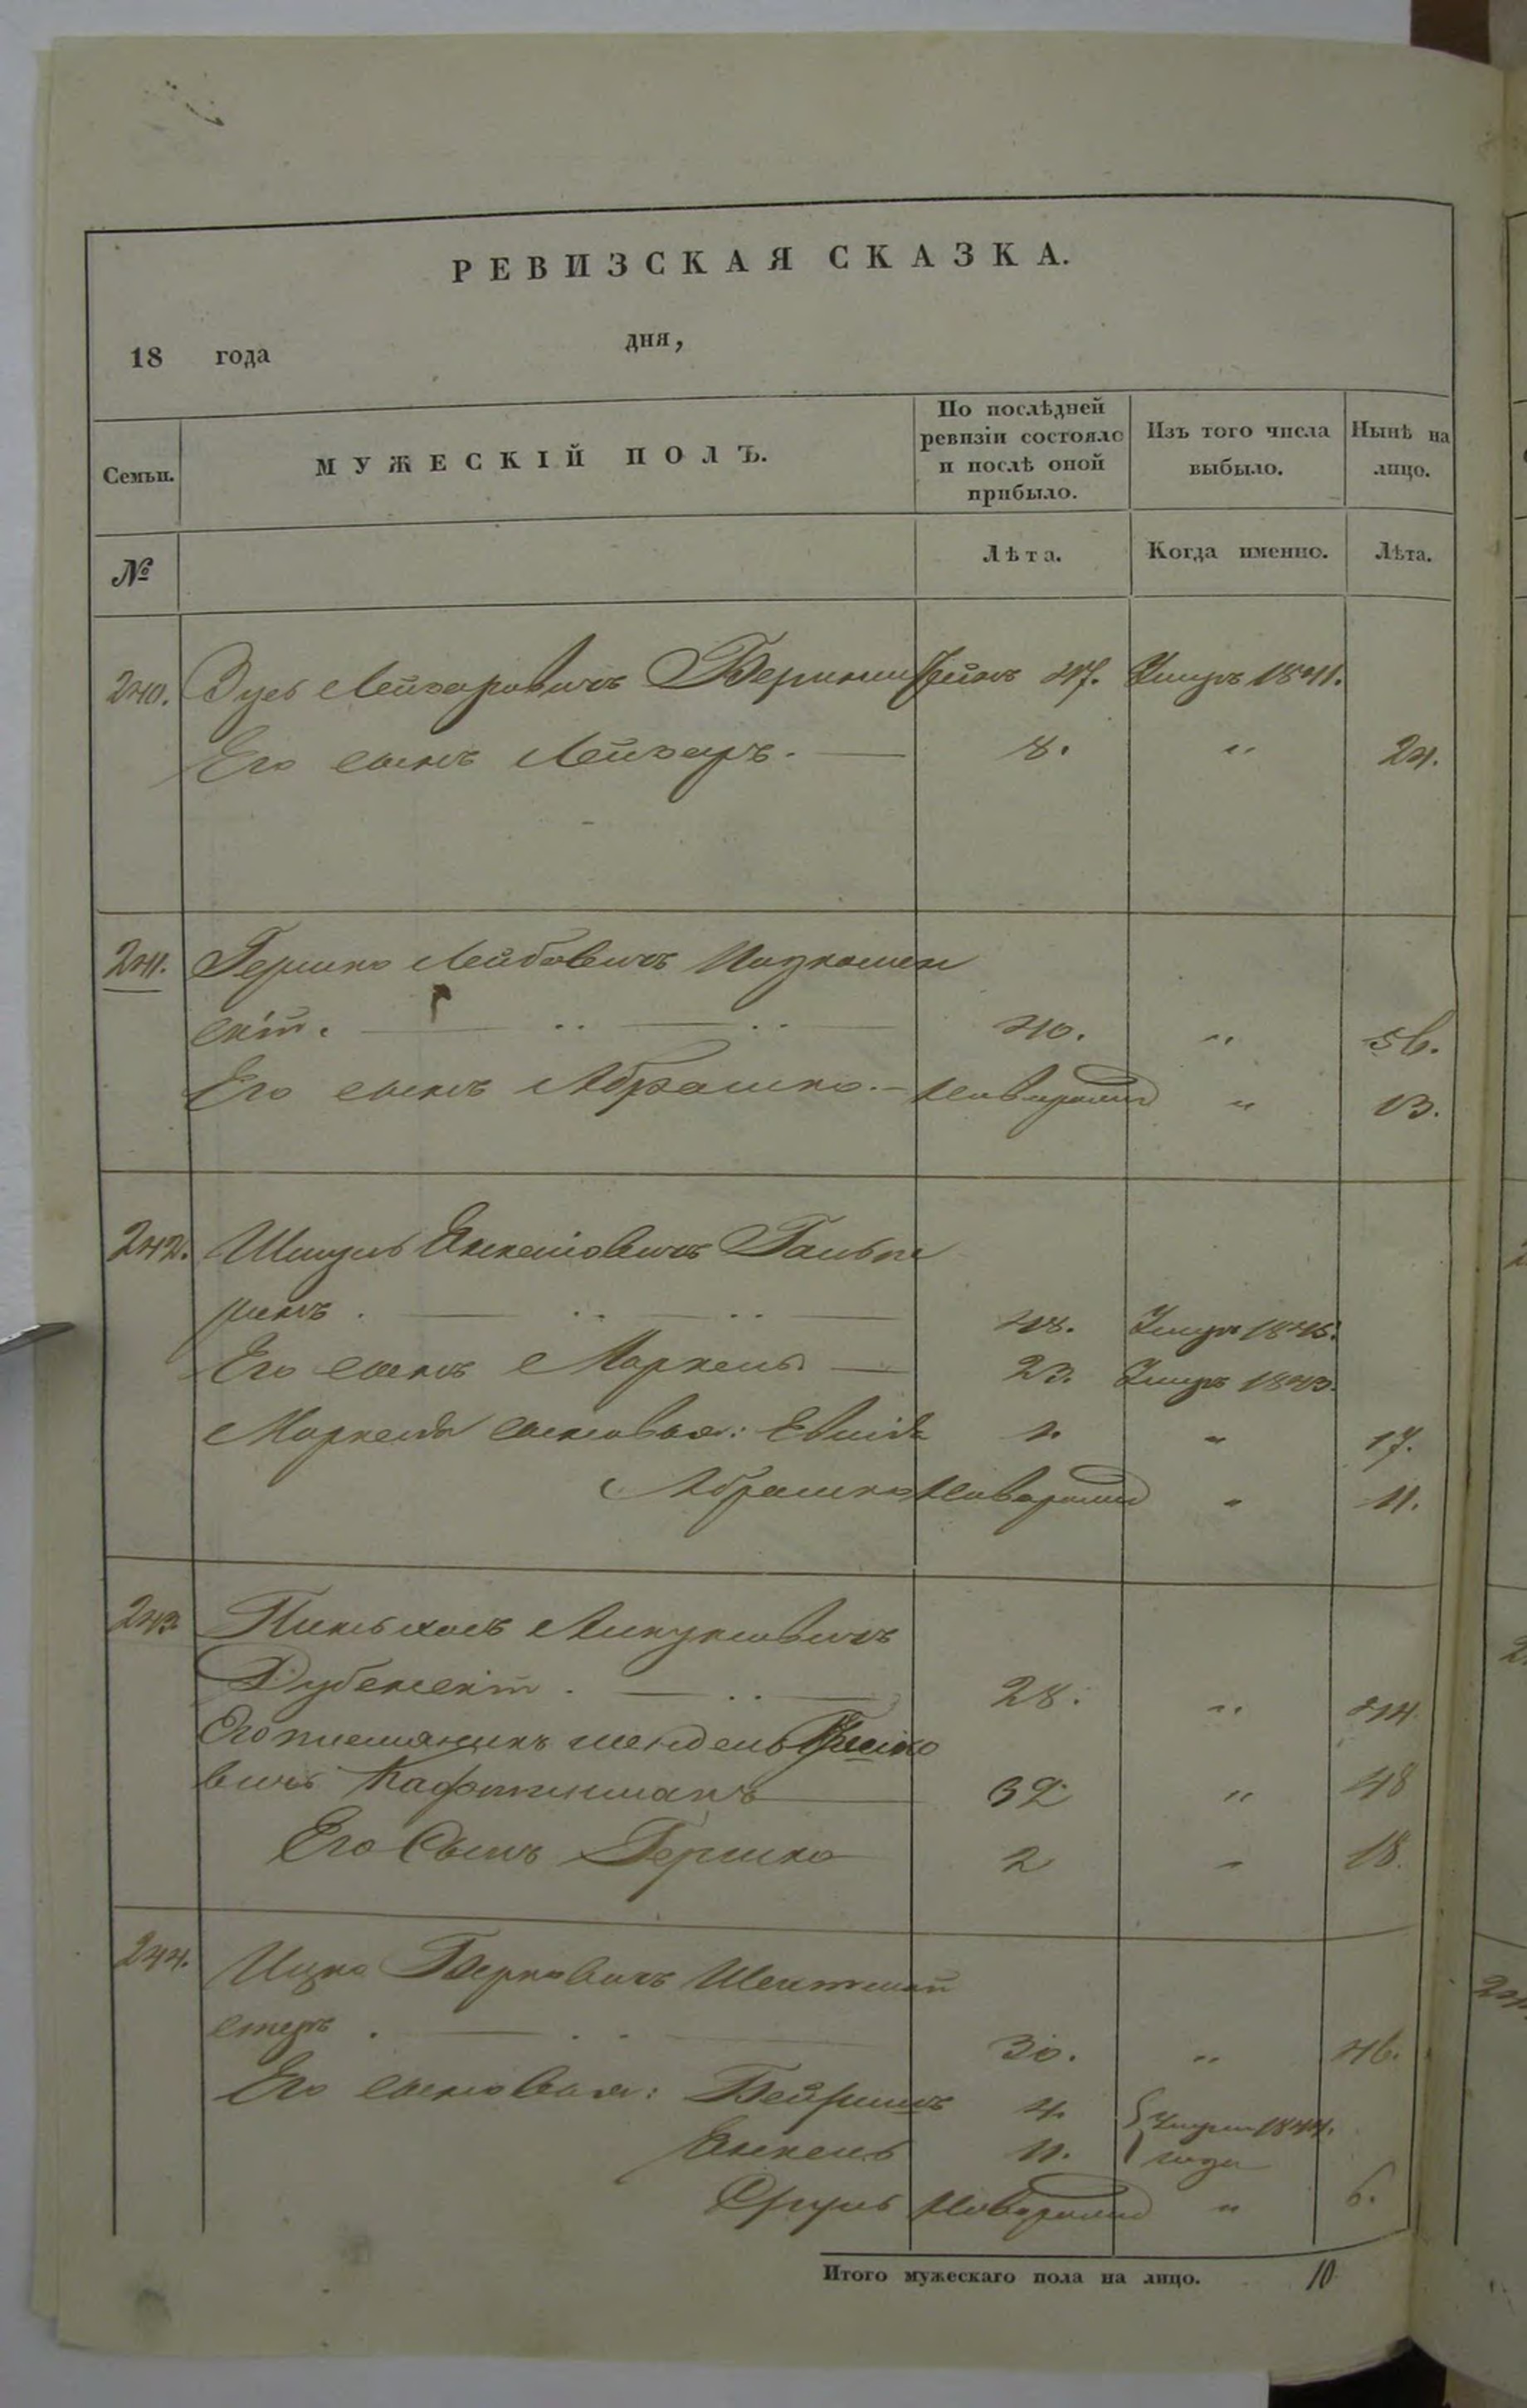 РЕВИЗСКАЯ СКАЗКА.
18 года дня,
Семьи. МУЖЕСКІЙ ПОЛЪ. По послѣдней ревизіи состояло и послѣ оной прибыло. Изъ того числа выбыло. Нынѣ на лицо.
№ Лѣта. Когда именно. Лѣта.
240. Зусь Лейзаровичъ 47. Умеръ 1841.
Его сынъ Лейзаръ. — 8. " 24.
241. Гершко Лейбовичъ
скій. — .. — .. — 40. " 56.
Его сынъ Абрашко. — Новорожд " 13.
242. Шмуль Янкеліовичъ Гальпе
ринъ . — .. — .. — 48. Умеръ 1845.
Его сынъ Маркель — 23. Умеръ 1843.
Маркеля сыновья: 1. " 17.
Абрашко Новорожд " 11.
243.
Дубенскій . — .. — 28. " 44
Его племяникъ мендель
вичъ — 32 " 48
Его Сынъ Гершко 2 " 18.
244. Ицко Берковичъ
стеръ . — .. — 30. " 46.
Его сыновья: 4. { Умерли 1844.
Янкель 11. { года
Сруль Новорожд " 6.
Итого мужескаго пола на лицо. 10